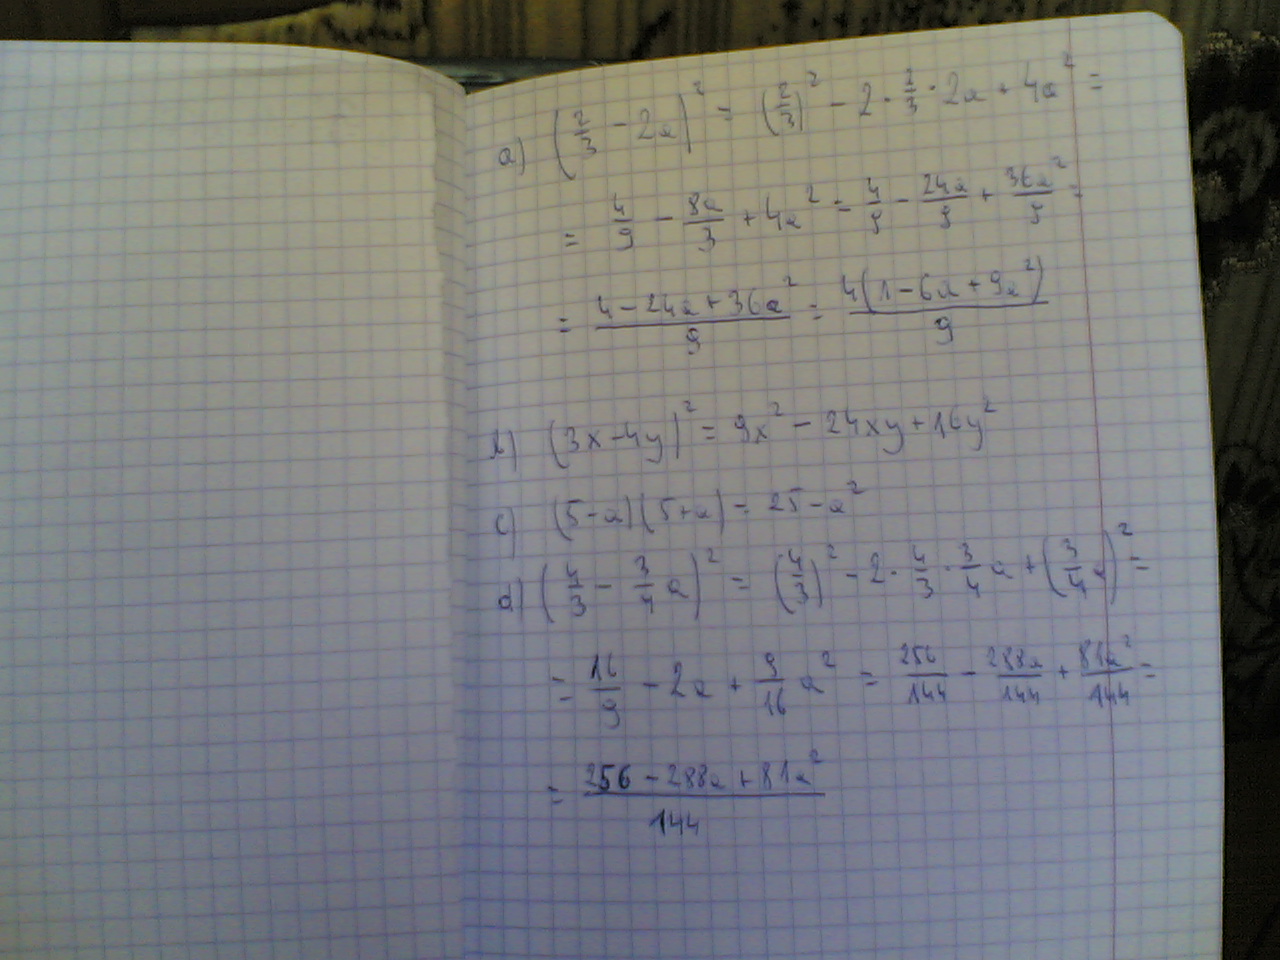 a) (2/3 - 2a)² = (2/3)² - 2 · 2/3 · 2a + 4a² =
= 4/9 - 8a/3 + 4a² = 4/9 - 24a/9 + 36a²/9 =
= (4 - 24a + 36a²)/9 = 4(1 - 6a + 9a²)/9
b) (3x - 4y)² = 9x² - 24xy + 16y²
c) (5 - a)(5 + a) = 25 - a²
d) (4/3 - 3/4 a)² = (4/3)² - 2 · 4/3 · 3/4 a + (3/4 a)² =
= 16/9 - 2a + 9/16 a² = 256/144 - 288a/144 + 81a²/144 =
= (256 - 288a + 81a²)/144